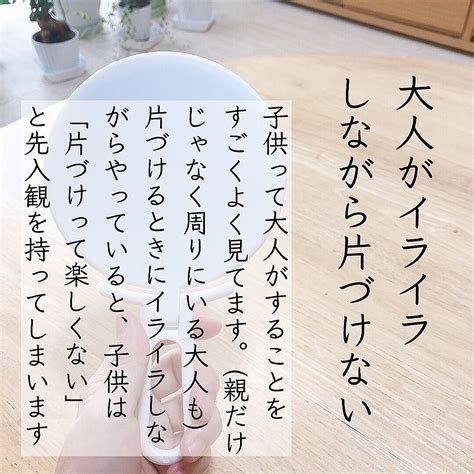 大人がイライラ
しながら片づけない
子供って大人がすることを
すごくよく見てます。（親だけ
じゃなく周りにいる大人も）
片づけるときにイライラしな
がらやっていると、子供は
「片づけって楽しくない」
と先入観を持ってしまいます